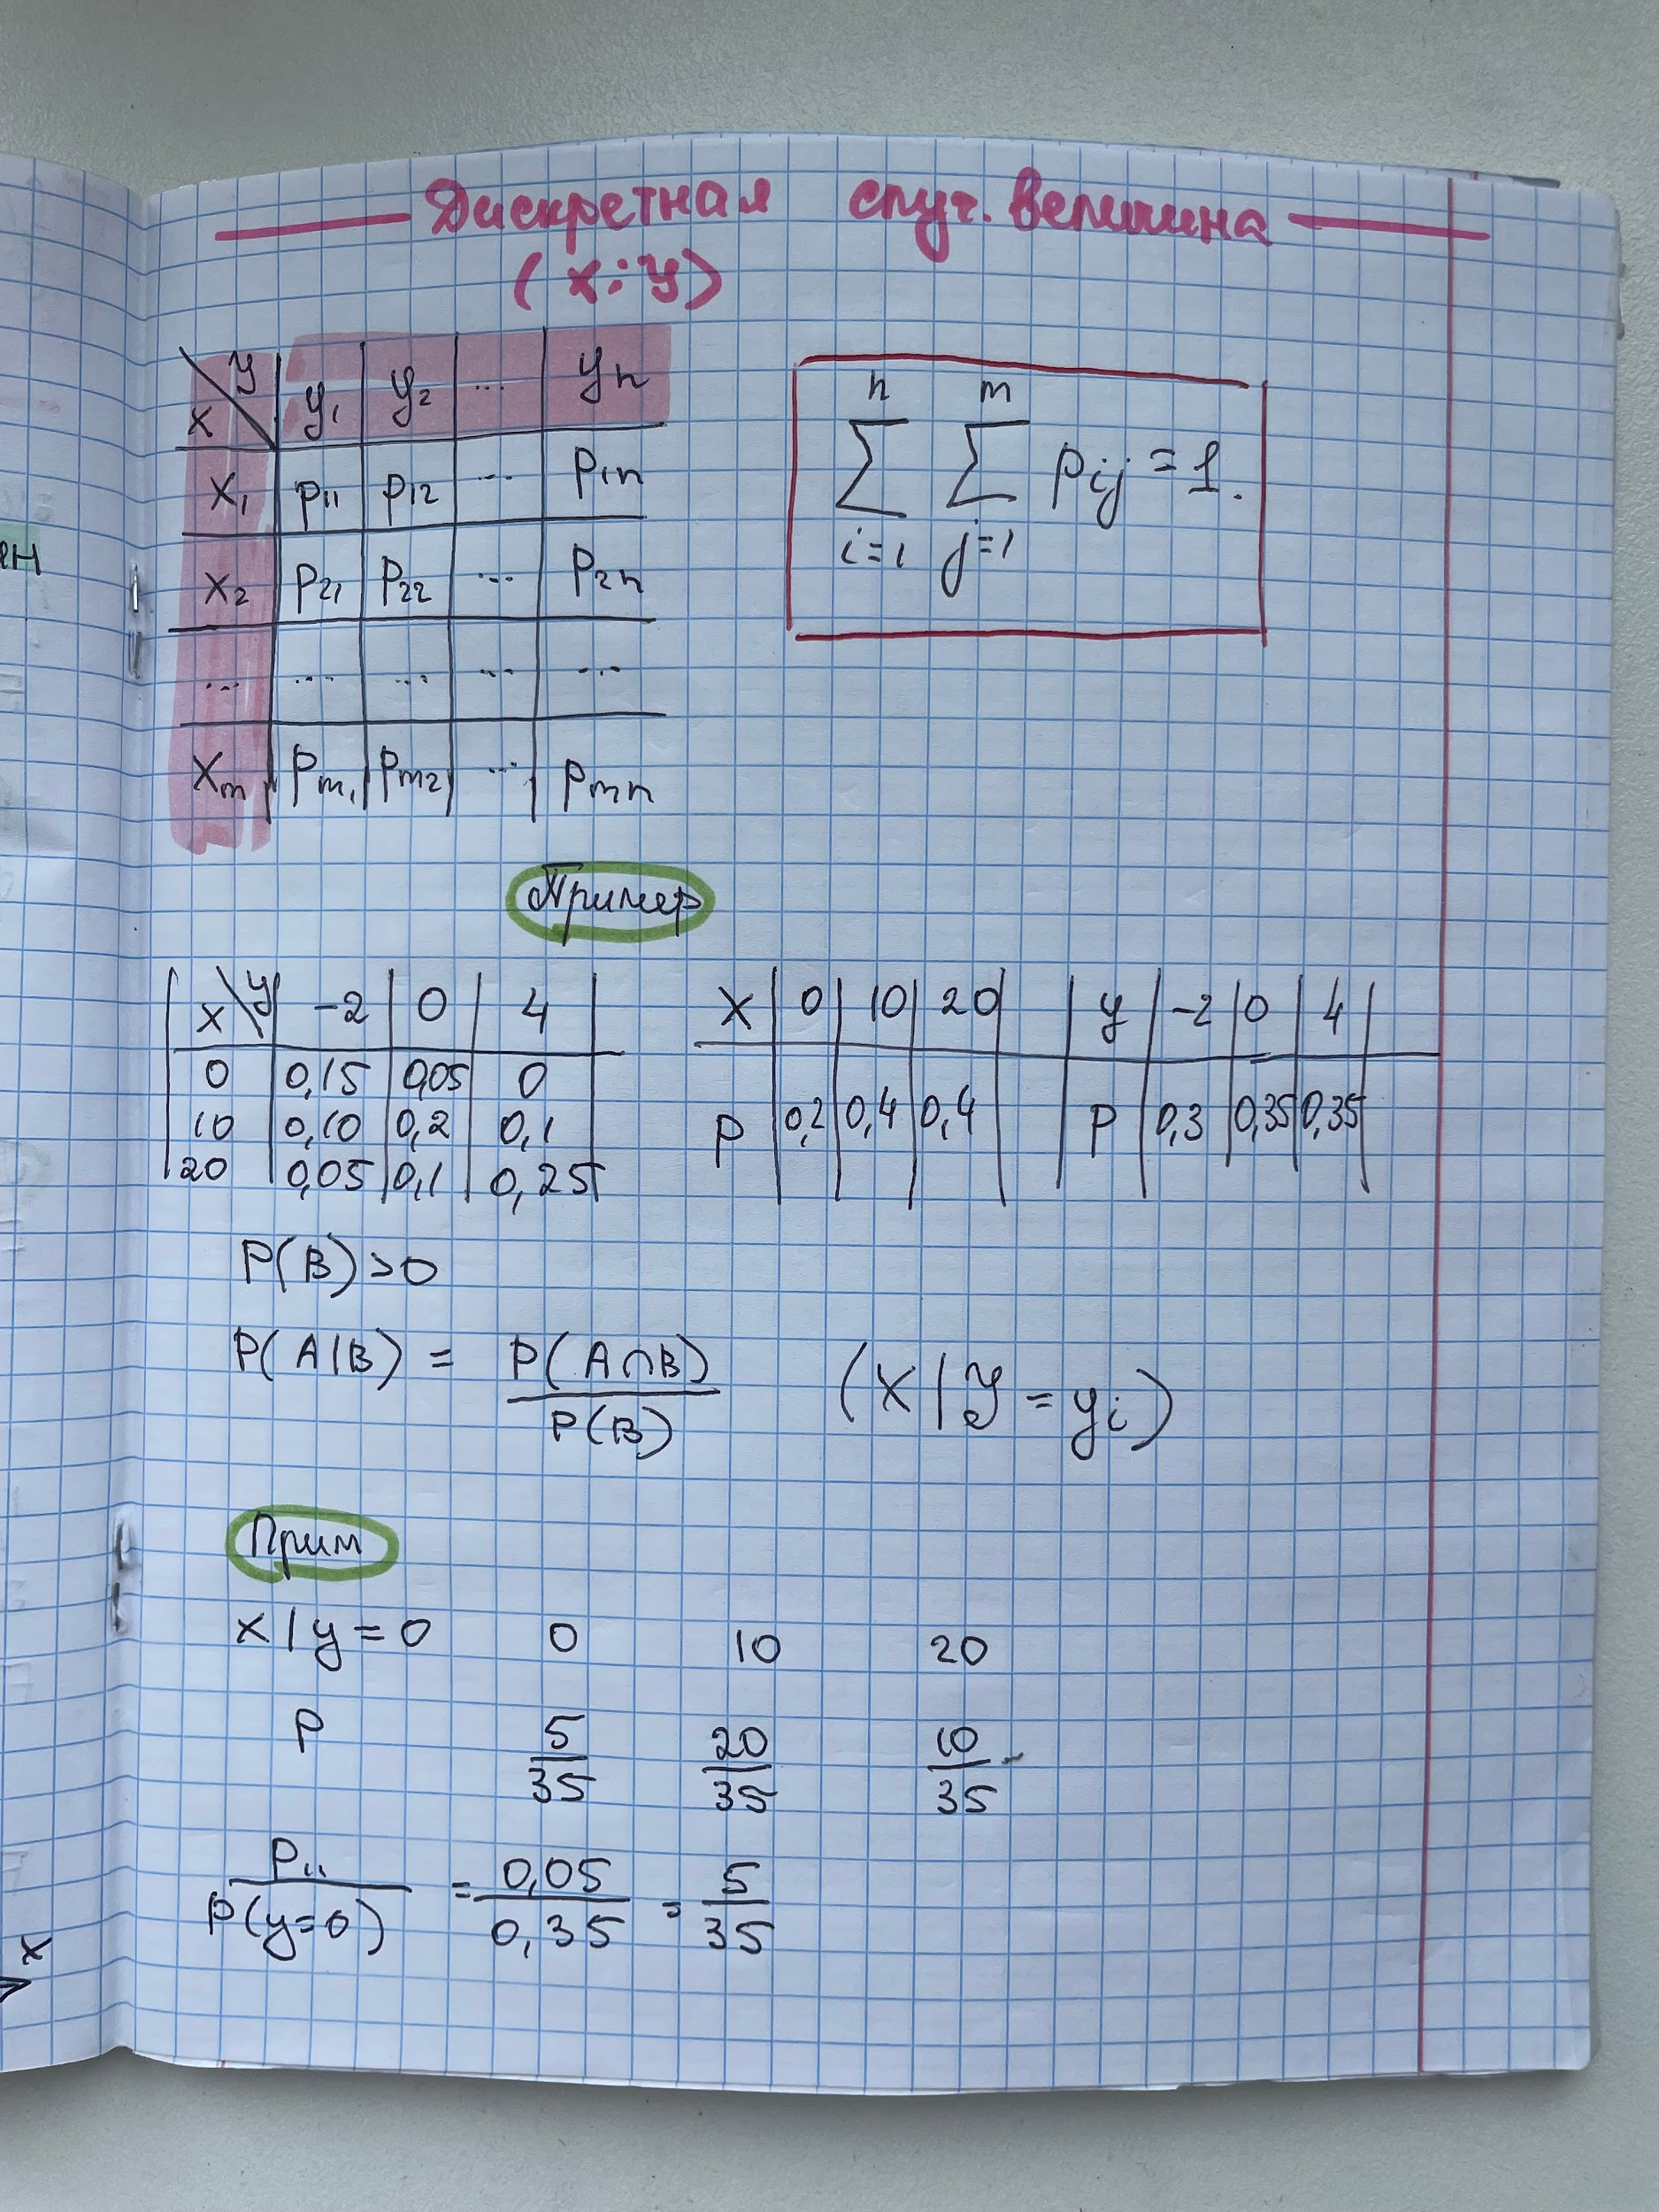 Дискретная случ. величина
(x; y)
x \ y y₁ y₂ ... yn
x₁ p₁₁ p₁₂ ... p₁n
x₂ p₂₁ p₂₂ ... p₂n
... ... ... ... ...
xm pm₁ pm₂ ... pmn
n m
∑ ∑ pij = 1.
i=1 j=1
Пример
x \ y -2 0 4
0 0,15 0,05 0
10 0,10 0,2 0,1
20 0,05 0,1 0,25
X 0 10 20
P 0,2 0,4 0,4
y -2 0 4
P 0,3 0,35 0,35
P(B)>0
P(A|B) = P(A∩B) / P(B) (X | Y = yi)
Прим
x | y = 0 0 10 20
P 5/35 20/35 10/35
P₁₁ / P(y=0) = 0,05 / 0,35 = 5/35
x